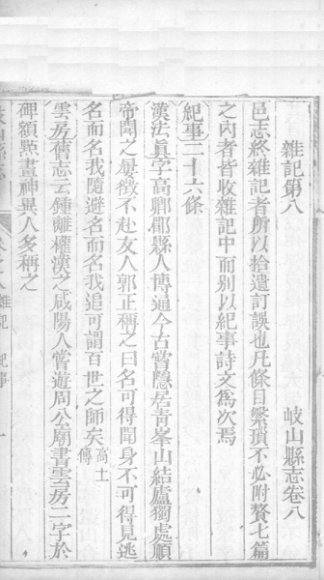 岐山縣志卷八
雜記第八
邑志終雜記者所以拾遺訂誤也凡條目繁瑣不必附贅七篇
之內者皆收雜記中而別以紀事詩文爲次焉
紀事二十六條
漢法眞字高卿郿縣人博通今古嘗隱居靑峯山結廬獨處順
帝聞之屢徵不赴友人郭正稱之曰名可得聞身不可得見逃
名而名我隨避名而名我追可謂百世之師矣高士傳
雲房舊志云鍾離權漢之咸陽人嘗遊周公廟書雲房二字於
碑額點畫神異人多稱之